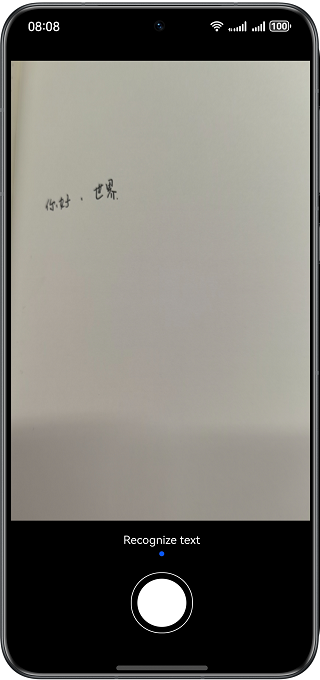 08:08
100
你好，世界
Recognize text